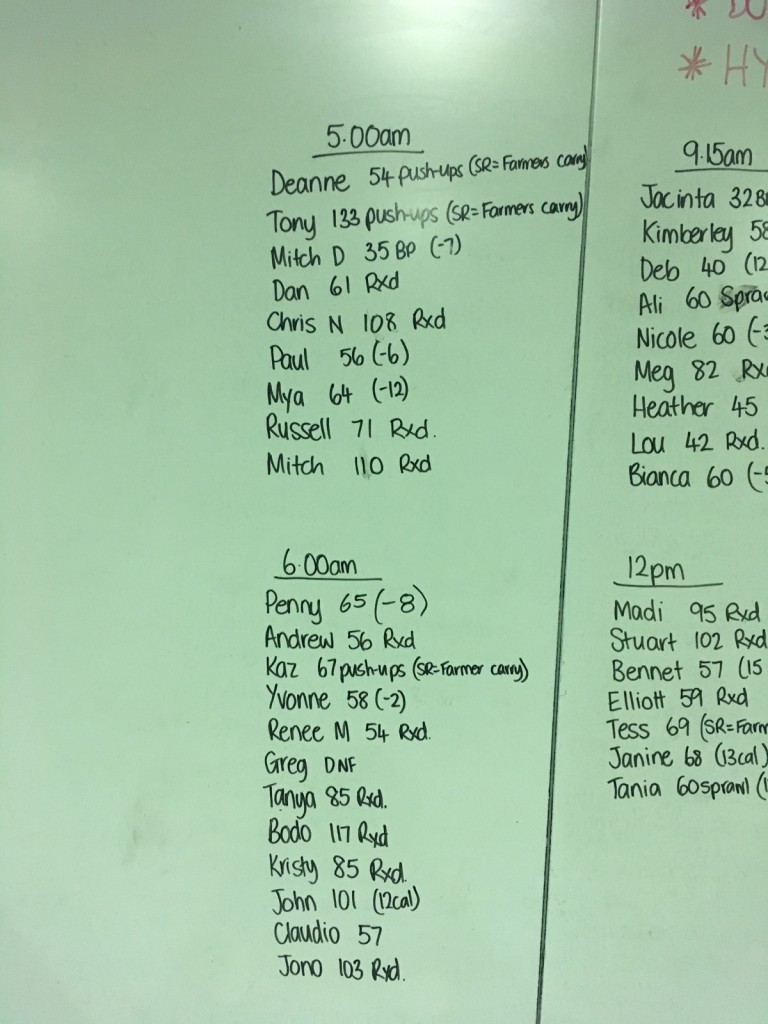 5.00am
Deanne 54 push-ups (SR=Farmers carry)
Tony 133 push-ups (SR=Farmers carry)
Mitch D 35 BP (-7)
Dan 61 Rxd
Chris N 108 Rxd
Paul 56 (-6)
Mya 64 (-12)
Russell 71 Rxd.
Mitch 110 Rxd
6.00am
Penny 65 (-8)
Andrew 56 Rxd
Kaz 67 push-ups (SR=Farmer carry)
Yvonne 58 (-2)
Renee M 54 Rxd.
Greg DNF
Tanya 85 Rxd.
Bodo 117 Rxd
Kristy 85 Rxd.
John 101 (12cal)
Claudio 57
Jono 103 Rxd.
* HY
9.15am
Jacinta 328
Kimberley 58
Deb 40 (12
Ali 60 Spra
Nicole 60 (-3
Meg 82 Rx
Heather 45
Lou 42 Rxd.
Bianca 60 (-5
12pm
Madi 95 Rxd
Stuart 102 Rxd
Bennet 57 (15
Elliott 59 Rxd
Tess 69 (SR=Farm
Janine 68 (13cal)
Tania 60 sprawl (1